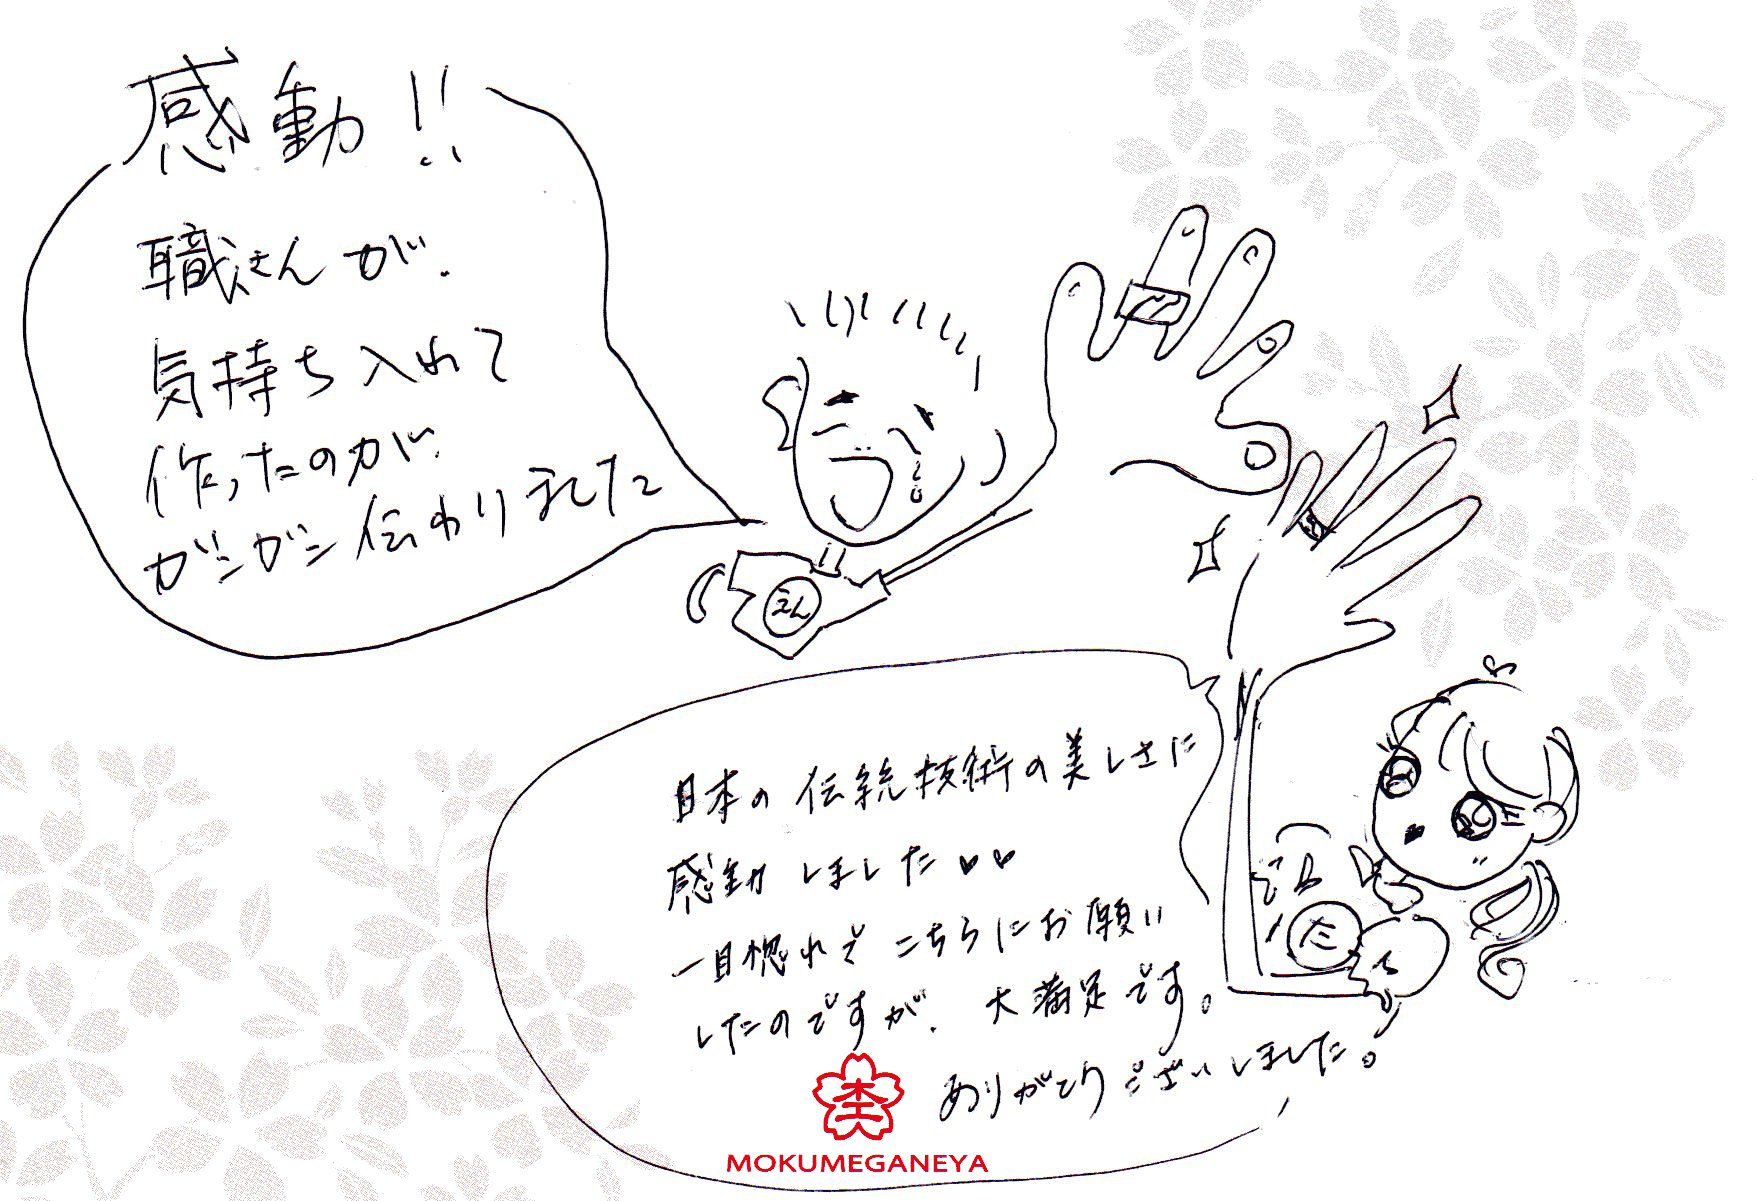 感動!!
職さんが、
気持ち入れて
作ったのが、
ガンガン伝わりました
えん
日本の伝統技術の美しさに
感動しました♥♥
一目惚れでこちらにお願い
したのですが、大満足です。
ありがとうございました。
た
MOKUMEGANEYA